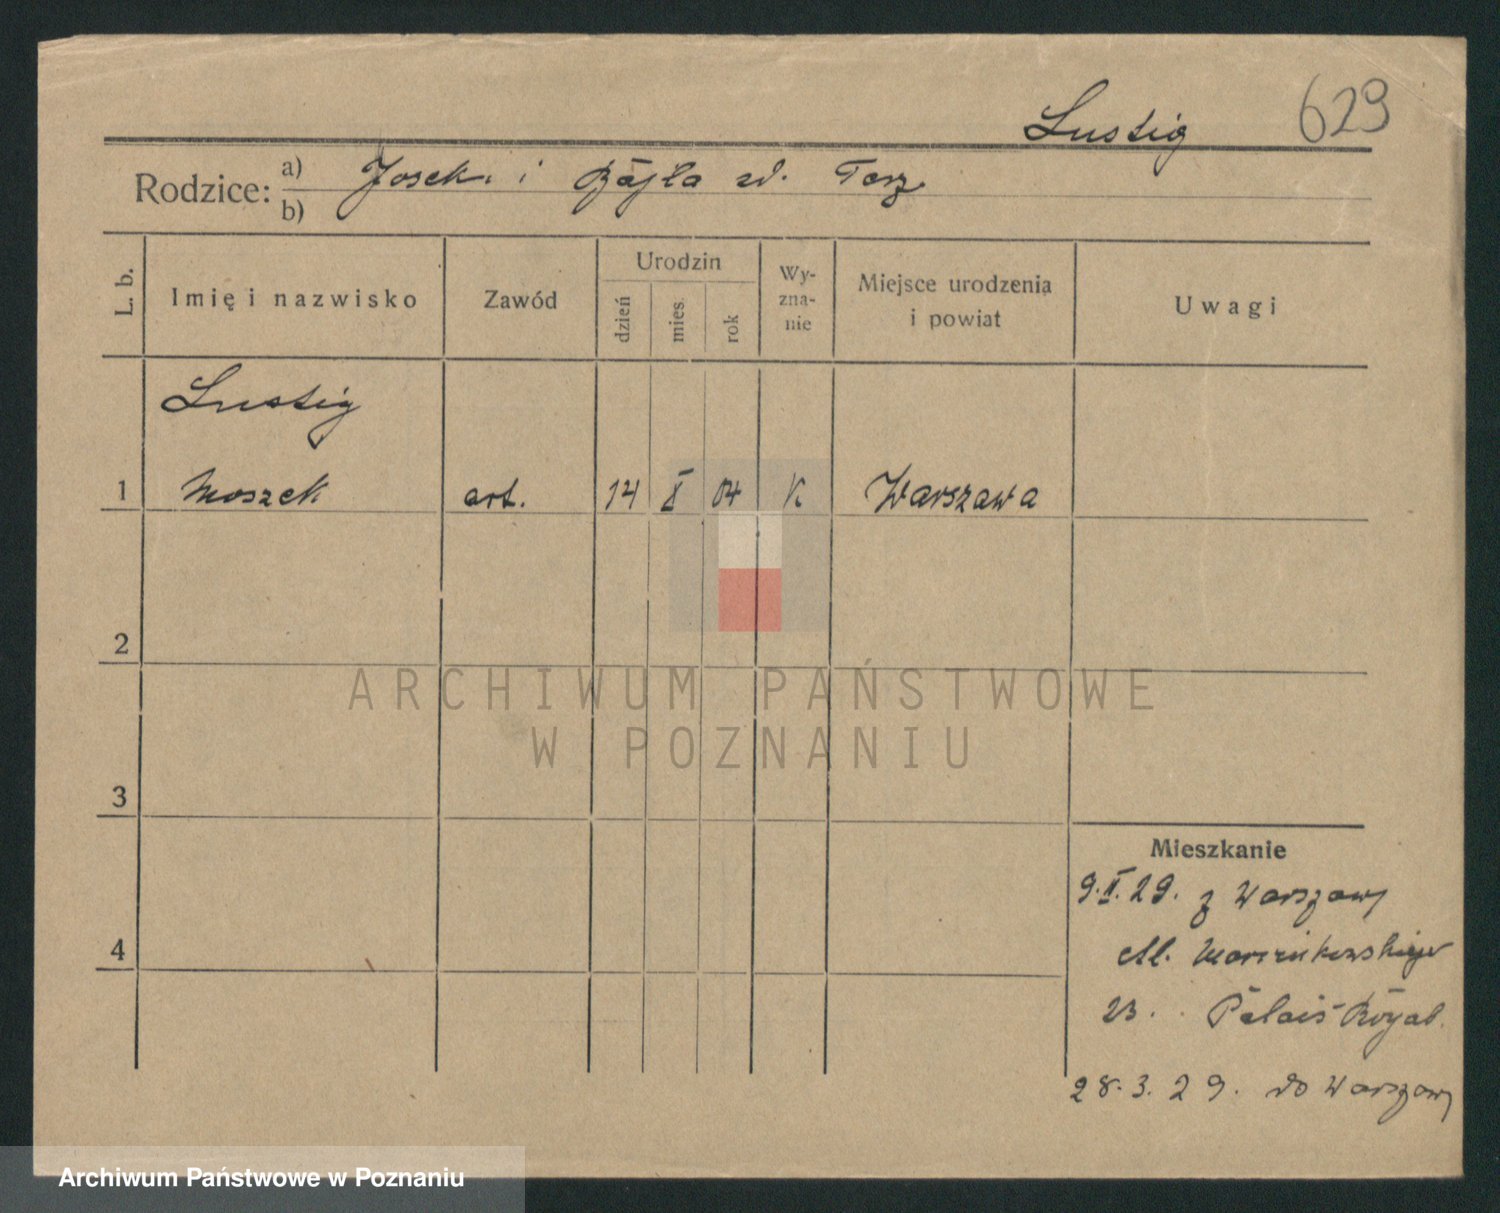 Lustig 629
Rodzice: a) Josek i Bajla zd. Torz
b)
L. b. Imię i nazwisko Zawód Urodzin dzień mies. rok Wyzna-nie Miejsce urodzenia i powiat Uwagi
Lustig
1 Moszek art. 14 X 04 K Warszawa
2
3
4
Mieszkanie
9.II.29. z Warszawy
Al. Marcinkowskiego
23. Palais Royal.
28.3.29. do Warszawy
ARCHIWUM PAŃSTWOWE
W POZNANIU
Archiwum Państwowe w Poznaniu